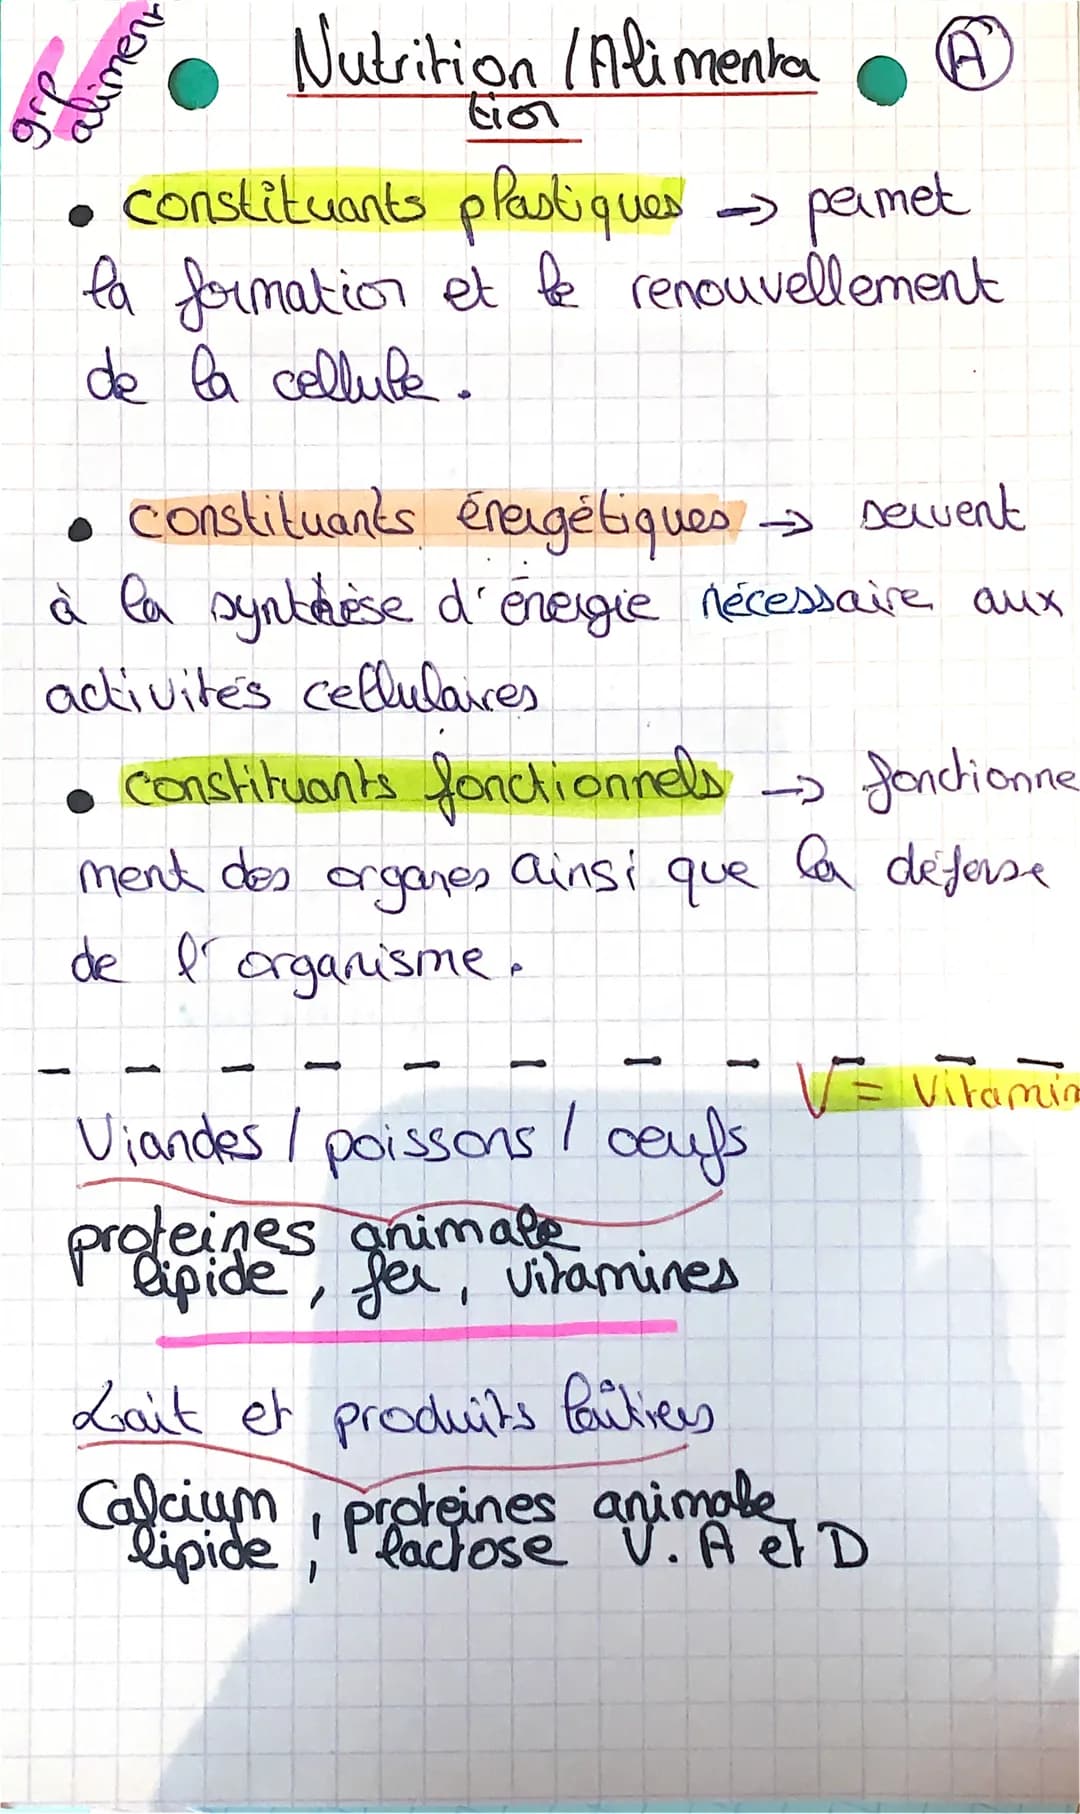 grp
aliment
Nutrition / Alimenta
tion
A
• constituants plastiques → permet
la formation et le renouvellement
de la cellule.
• constituants énergétiques → servent
à la synthèse d'énergie nécessaire aux
activités cellulaires
• constituants fonctionnels → fonctionne
ment des organes ainsi que la défense
de l'organisme.
V = Vitamin
Viandes / poissons / oeufs
proteines animale
lipide, fer, vitamines
Lait et produits laitiers
Calcium, proteines animale
lipide, lactose V. A et D